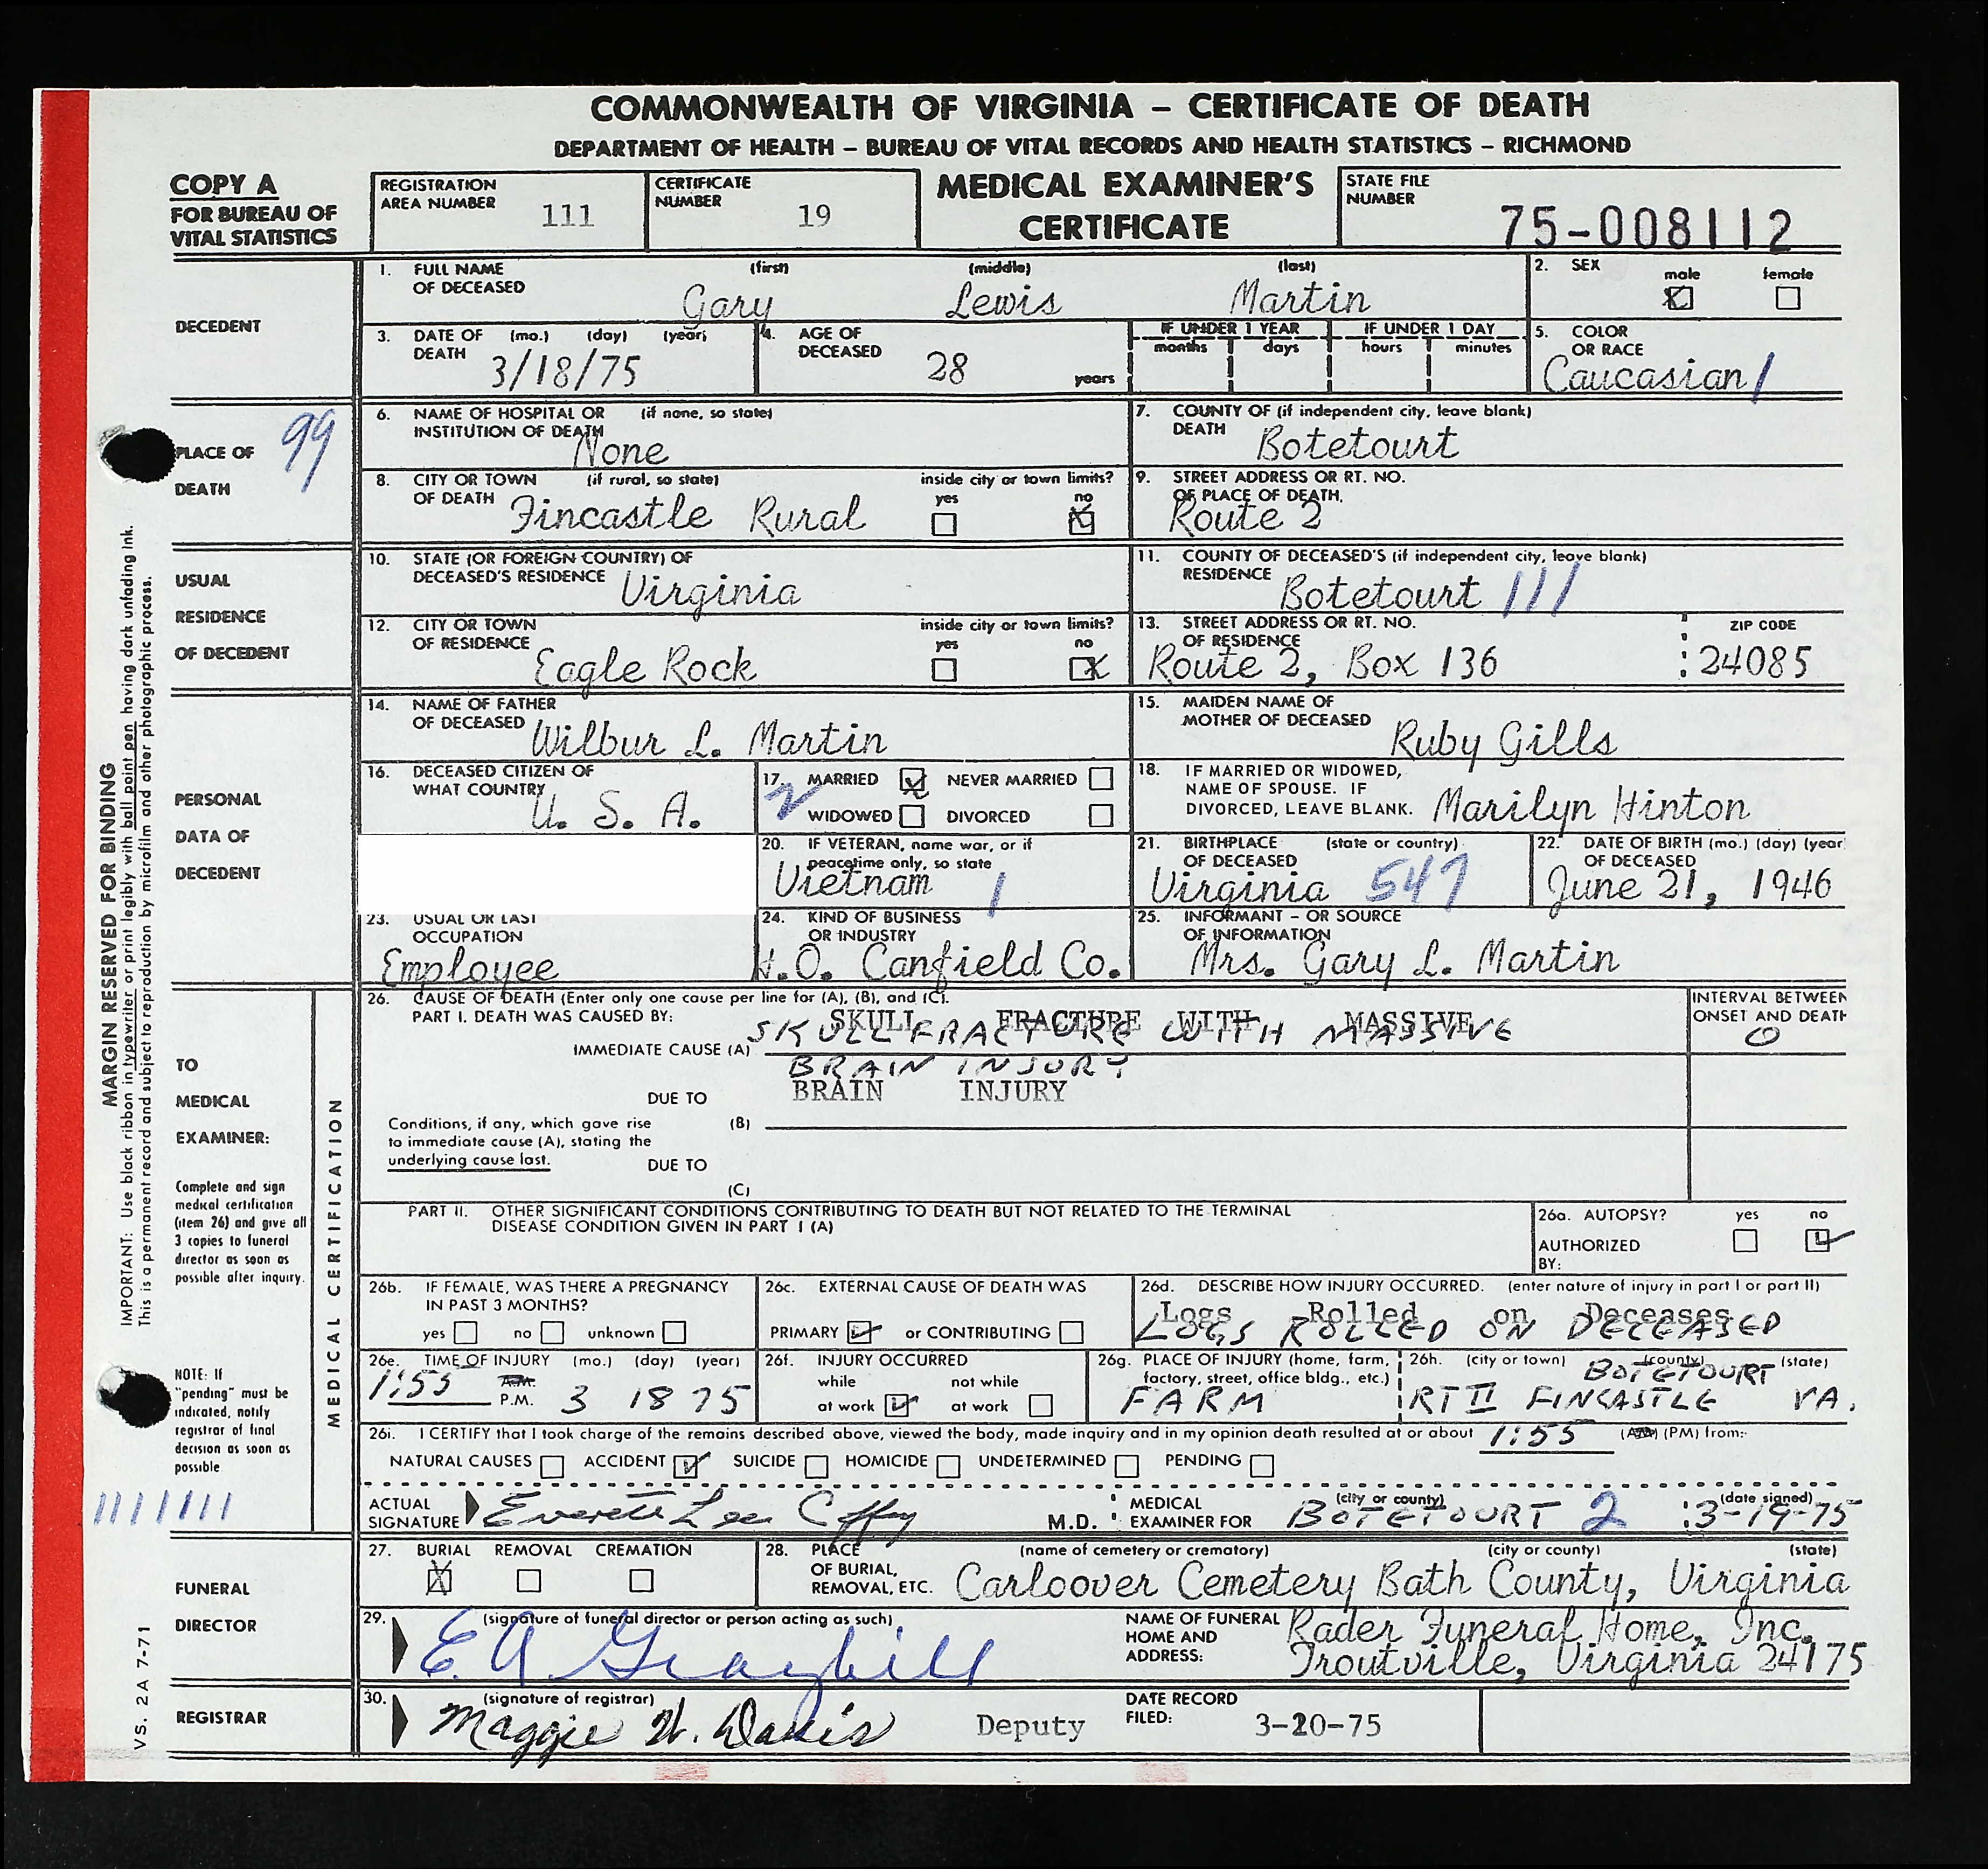 COMMONWEALTH OF VIRGINIA – CERTIFICATE OF DEATH
DEPARTMENT OF HEALTH – BUREAU OF VITAL RECORDS AND HEALTH STATISTICS – RICHMOND
COPY A
FOR BUREAU OF
VITAL STATISTICS
REGISTRATION
AREA NUMBER 111
CERTIFICATE
NUMBER 19
MEDICAL EXAMINER'S
CERTIFICATE
STATE FILE
NUMBER
75-008112
DECEDENT
1. FULL NAME (first) (middle) (last)
OF DECEASED Gary Lewis Martin
2. SEX male female
3. DATE OF (mo.) (day) (year)
DEATH 3/18/75
4. AGE OF
DECEASED 28 years
IF UNDER 1 YEAR IF UNDER 1 DAY
months days hours minutes
5. COLOR
OR RACE
Caucasian 1
PLACE OF
DEATH
99
6. NAME OF HOSPITAL OR (if none, so state)
INSTITUTION OF DEATH
None
7. COUNTY OF (if independent city, leave blank)
DEATH Botetourt
8. CITY OR TOWN (if rural, so state) inside city or town limits?
OF DEATH yes no
Fincastle Rural
9. STREET ADDRESS OR RT. NO.
OF PLACE OF DEATH.
Route 2
USUAL
RESIDENCE
OF DECEDENT
10. STATE (OR FOREIGN COUNTRY) OF
DECEASED'S RESIDENCE Virginia
11. COUNTY OF DECEASED'S (if independent city, leave blank)
RESIDENCE Botetourt 111
12. CITY OR TOWN inside city or town limits?
OF RESIDENCE yes no
Eagle Rock
13. STREET ADDRESS OR RT. NO. ZIP CODE
OF RESIDENCE
Route 2, Box 136 24085
PERSONAL
DATA OF
DECEDENT
14. NAME OF FATHER
OF DECEASED Wilbur L. Martin
15. MAIDEN NAME OF
MOTHER OF DECEASED Ruby Gills
16. DECEASED CITIZEN OF
WHAT COUNTRY
U. S. A.
17. MARRIED NEVER MARRIED
2
WIDOWED DIVORCED
18. IF MARRIED OR WIDOWED,
NAME OF SPOUSE. IF
DIVORCED, LEAVE BLANK. Marilyn Hinton
20. IF VETERAN, name war, or if
peacetime only, so state
Vietnam 1
21. BIRTHPLACE (state or country)
OF DECEASED
Virginia 547
22. DATE OF BIRTH (mo.) (day) (year
OF DECEASED
June 21, 1946
23. USUAL OR LAST
OCCUPATION
Employee
24. KIND OF BUSINESS
OR INDUSTRY
H.O. Canfield Co.
25. INFORMANT – OR SOURCE
OF INFORMATION
Mrs. Gary L. Martin
TO
MEDICAL
EXAMINER:
Complete and sign
medical certification
(item 26) and give all
3 copies to funeral
director as soon as
possible after inquiry.
NOTE: If
"pending" must be
indicated, notify
registrar of final
decision as soon as
possible
1111111
MEDICAL CERTIFICATION
26. CAUSE OF DEATH (Enter only one cause per line for (A), (B), and (C).
PART I. DEATH WAS CAUSED BY:
INTERVAL BETWEEN
ONSET AND DEATH
0
SKULL FRACTURE WITH MASSIVE
IMMEDIATE CAUSE (A) SKULL FRACTURE WITH MASSIVE
BRAIN INJURY
BRAIN INJURY
DUE TO
Conditions, if any, which gave rise
to immediate cause (A), stating the
underlying cause last.
(B)
DUE TO
(C)
PART II. OTHER SIGNIFICANT CONDITIONS CONTRIBUTING TO DEATH BUT NOT RELATED TO THE TERMINAL
DISEASE CONDITION GIVEN IN PART I (A)
26a. AUTOPSY? yes no
AUTHORIZED
BY:
26b. IF FEMALE, WAS THERE A PREGNANCY
IN PAST 3 MONTHS?
yes no unknown
26c. EXTERNAL CAUSE OF DEATH WAS
PRIMARY or CONTRIBUTING
26d. DESCRIBE HOW INJURY OCCURRED. (enter nature of injury in part I or part II)
Logs Rolled on Deceases
LOGS ROLLED ON DECEASED
26e. TIME OF INJURY (mo.) (day) (year)
1:55 A.M.
P.M. 3 18 75
26f. INJURY OCCURRED
while not while
at work at work
26g. PLACE OF INJURY (home, farm,
factory, street, office bldg., etc.)
FARM
26h. (city or town) (county) (state)
BOTETOURT
RT II FINCASTLE VA.
26i. I CERTIFY that I took charge of the remains described above, viewed the body, made inquiry and in my opinion death resulted at or about 1:55 (AM) (PM) from:
NATURAL CAUSES ACCIDENT SUICIDE HOMICIDE UNDETERMINED PENDING
ACTUAL
SIGNATURE Everett Lee Coffey M.D.
MEDICAL (city or county) (date signed)
EXAMINER FOR BOTETOURT 2 3-19-75
FUNERAL
DIRECTOR
27. BURIAL REMOVAL CREMATION
28. PLACE (name of cemetery or crematory) (city or county) (state)
OF BURIAL,
REMOVAL, ETC. Carloover Cemetery Bath County, Virginia
29. (signature of funeral director or person acting as such)
E A Graybill
NAME OF FUNERAL
HOME AND
ADDRESS:
Rader Funeral Home, Inc.
Troutville, Virginia 24175
REGISTRAR
30. (signature of registrar)
Maggie W. Davis Deputy
DATE RECORD
FILED: 3-20-75
MARGIN RESERVED FOR BINDING
IMPORTANT: Use black ribbon in typewriter or print legibly with ball point pen having dark unfading ink.
This is a permanent record and subject to reproduction by microfilm and other photographic process.
VS. 2A 7-71